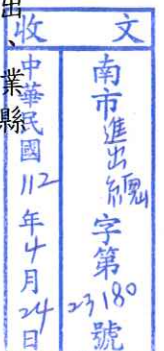 出、業縣
收文
南市進出總字第23180號
中華民國112年4月24日